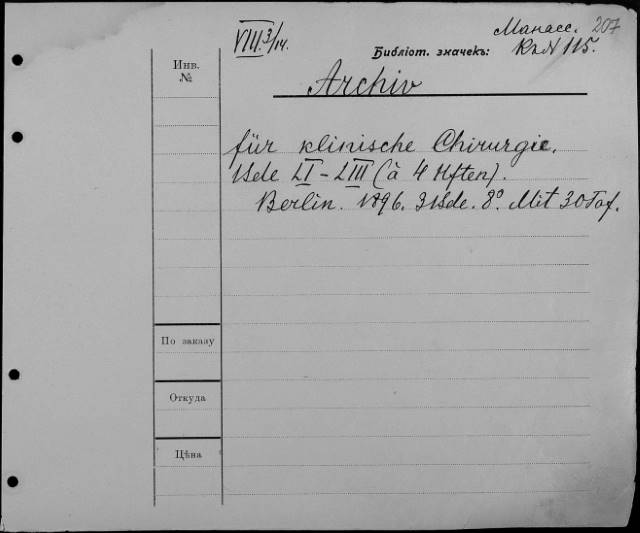 VIII.3/14.
Манасс. 207
Библіот. значекъ: Кз N 115.
Инв.
№
Archiv
für klinische Chirurgie.
Bde LI-LIII (à 4 Hften).
Berlin. 1896. 3 Bde. 8º. Mit 30 Taf.
По заказу
Откуда
Цѣна